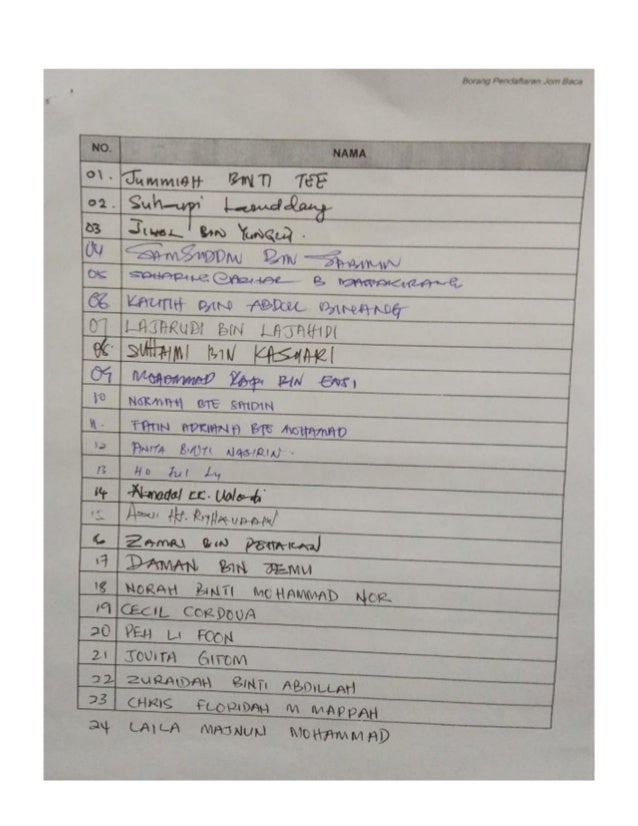 Borang Pendaftaran Jom Baca
NO. NAMA
01. JUMMIAH BINTI TEE
02. Suhaupi
03 BIN
04 SAMSUDDIN BIN SABIRIN
05 B
06. BIN ABDUL BINANG
07 LAJARUDI BIN LAJAHIDI
08. SUHAIMI BIN KASHARI
09 MOHAMMAD RAFI BIN ENSI
10 NORMAH BTE SAIDIN
11. FATIN ADRIANA BTE MOHAMAD
12 ANITA BINTI NASIRIN.
13 HO JUI LY
14 Ahmadal KK.
15 Hj.
16 ZAMRI BIN
17 DAMAN BIN JEMU
18 NORAH BINTI MOHAMMAD NOR
19 CECIL CORDOVA
20 PEH LI FOON
21 JOVITA GITOM
22 ZURAIDAH BINTI ABDILLAH
23 CHRIS FLORIDAH M MAPPAH
24 LAILA MAJNUN MOHAMMAD